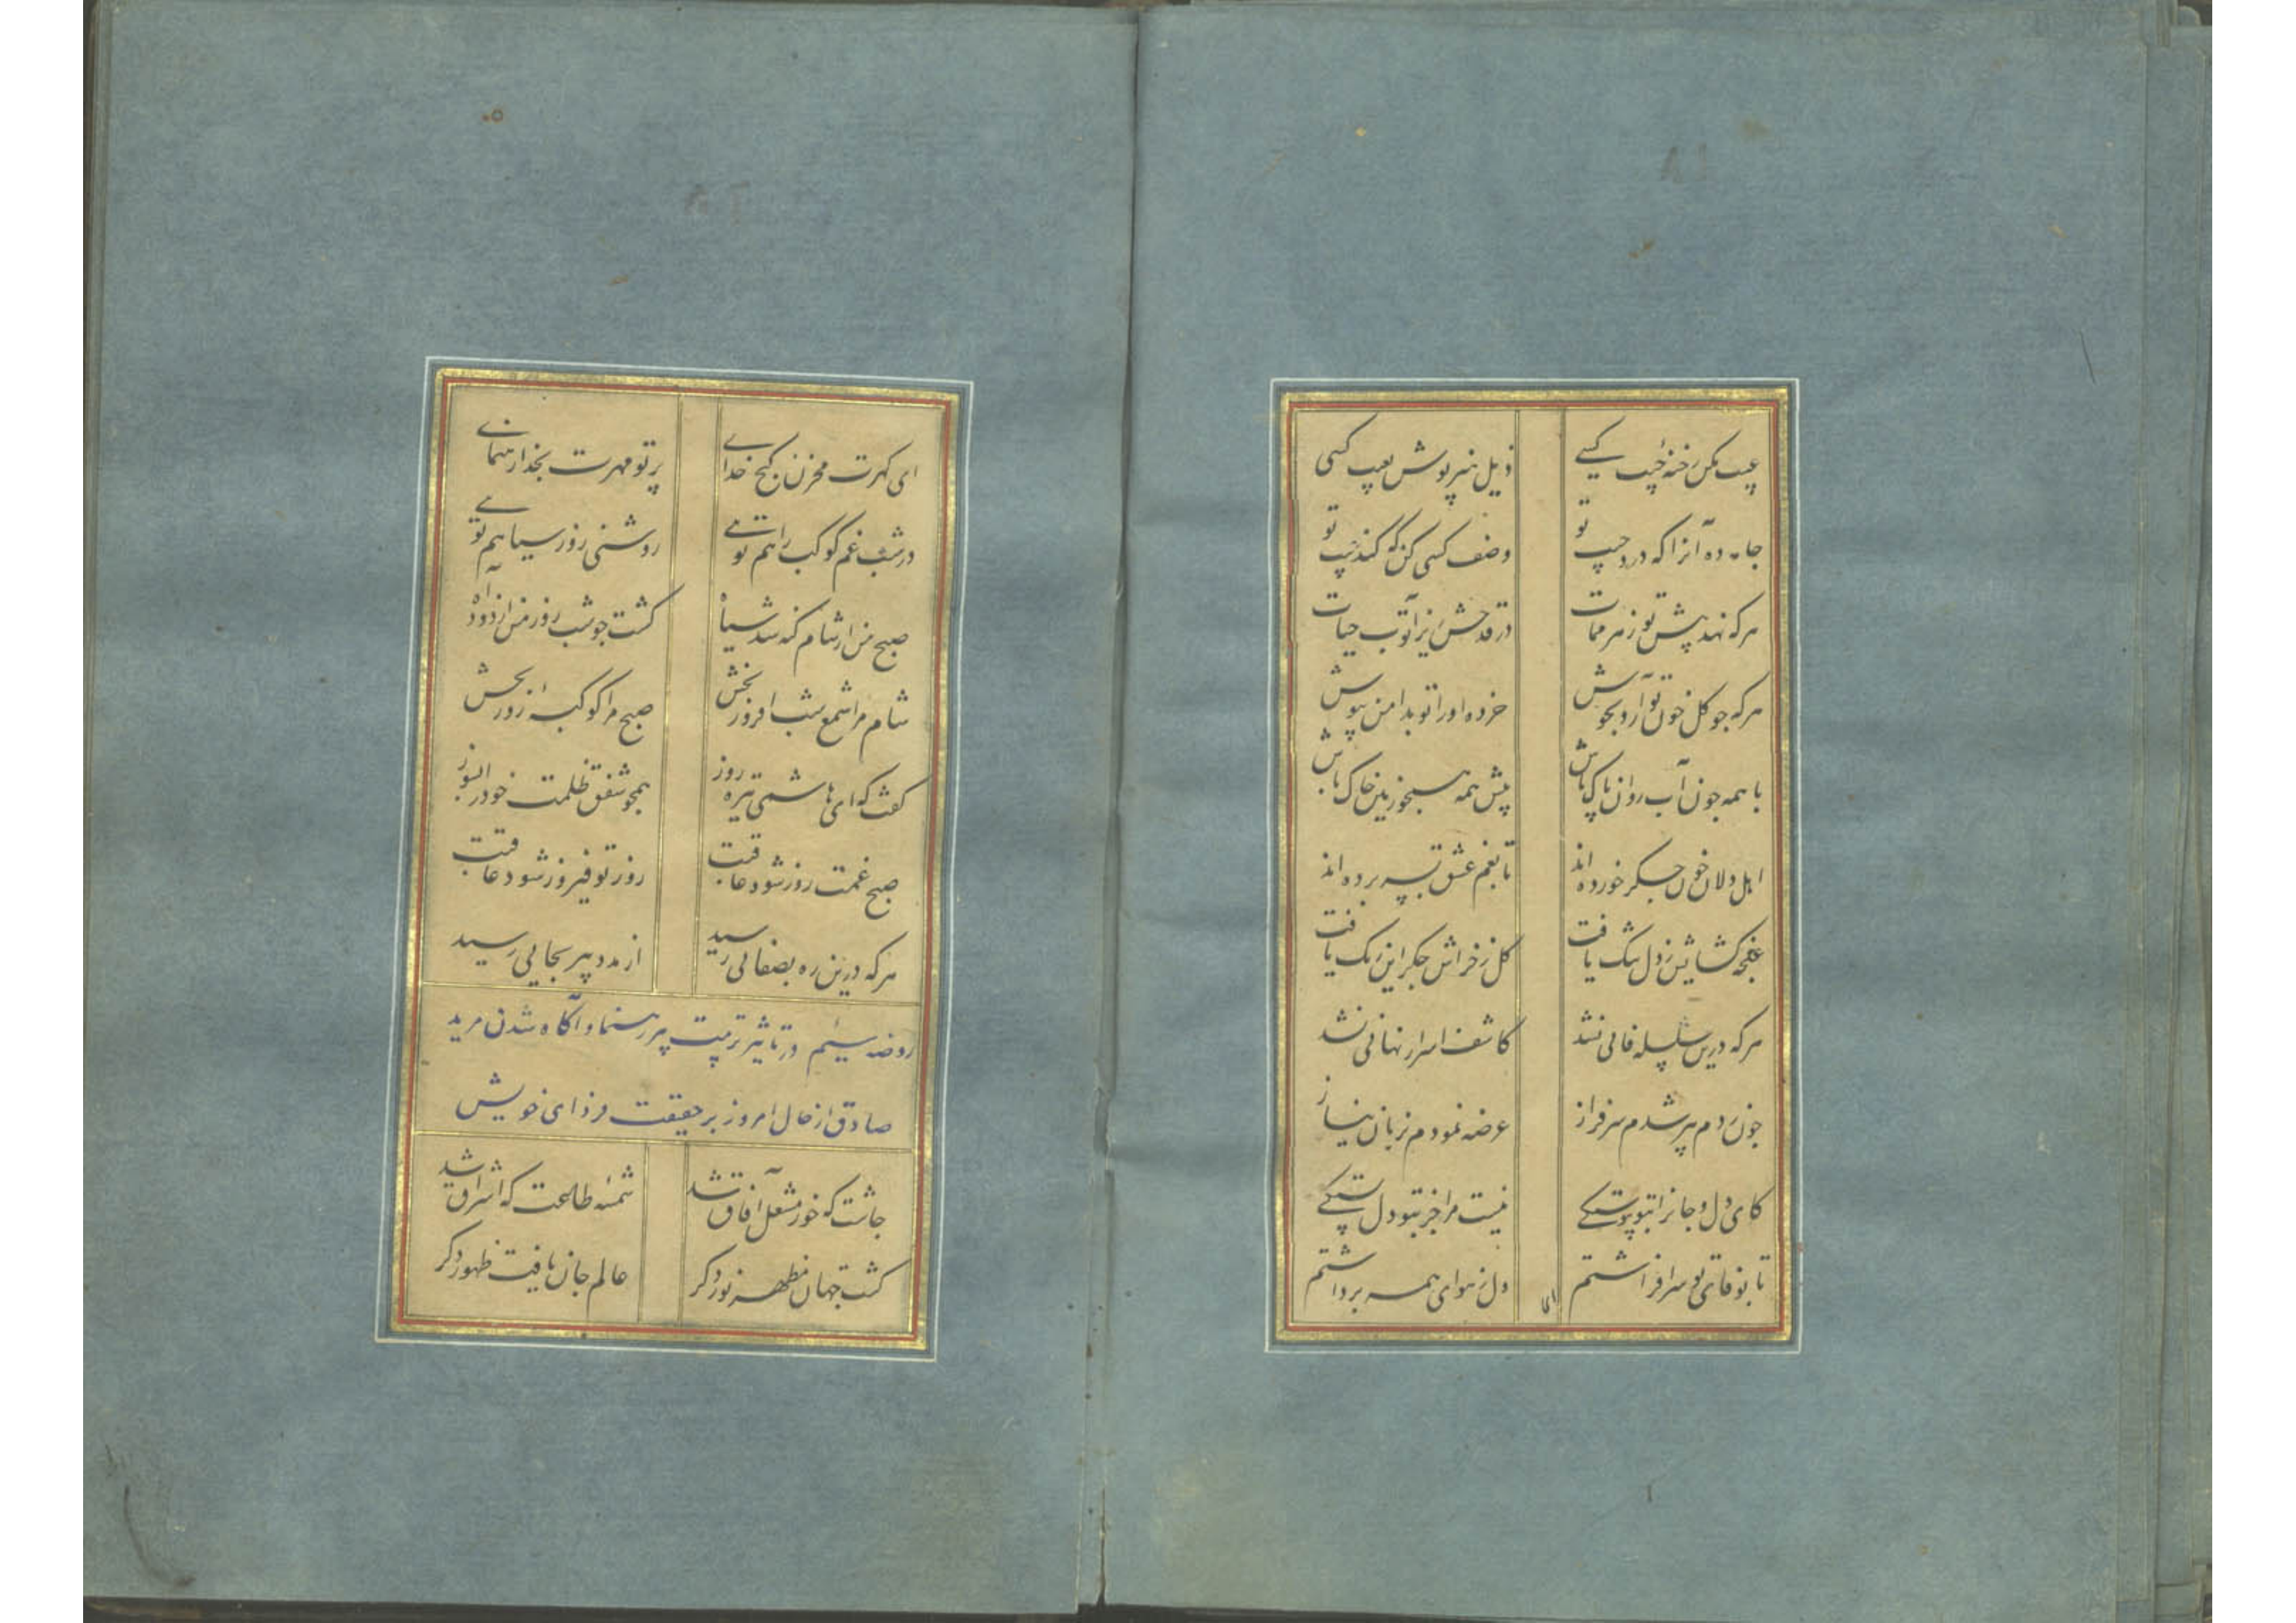 عیب مکن رخنهٔ جیب کسی
ذیل هنر پوش بعیب کسی
جامه ده آنرا که درد جیب تو
وصف کسی کن که کند عیب تو
هر که نهد پیش تو زهر ممات
در قدحش ریز تو آب حیات
هر که چو گل خون تو آرد بجوش
خرده او را تو بدامن بپوش
با همه چون آب روان پاک باش
پیش همه همچو زمین خاک باش
اهل دلان خون جگر خورده‌اند
تا بغم عشق تو پی برده‌اند
غنچه گشایش ز دل تنگ یافت
گل ز خراش جگر این رنگ یافت
هر که درین سلسله فانی نشد
کاشف اسرار نهانی نشد
چون ز دم پیر شدم سرفراز
عرضه نمودم بزبان نیاز
کای دل و جانرا بتو پیوستگی
نیست مرا جز بتو دل بستگی
تا بوفای تو سر افراشتم
دل ز هوای همه برداشتم
ای
ای گهرت مخزن گنج خدای
پرتو مهرت بخدا رهنمای
در شب غم کوکب راهم توئی
روشنی روز سیاهم توئی
صبح من ار شام گنه شد سیاه
گشت چو شب روز من از دود آه
شام مرا شمع شب افروز بخش
صبح مرا کوکبهٔ روز بخش
گفت که ای هاشمی تیره روز
همچو شفق ظلمت خود را بسوز
صبح غمت روز شود عاقبت
روز تو فیروز شود عاقبت
هر که درین ره بصفائی رسید
از مدد پیر بجایی رسید
روضه سیم در تاثیر تربیت پیر رهنما و آگاه شدن مرید
صادق از حال امروز بر حقیقت فردای خویش
چاشت که خور مشعل آفاق شد
شمسه طلعت که اشراق شد
گشت جهان مظهر نور دگر
عالم جان یافت ظهور دگر